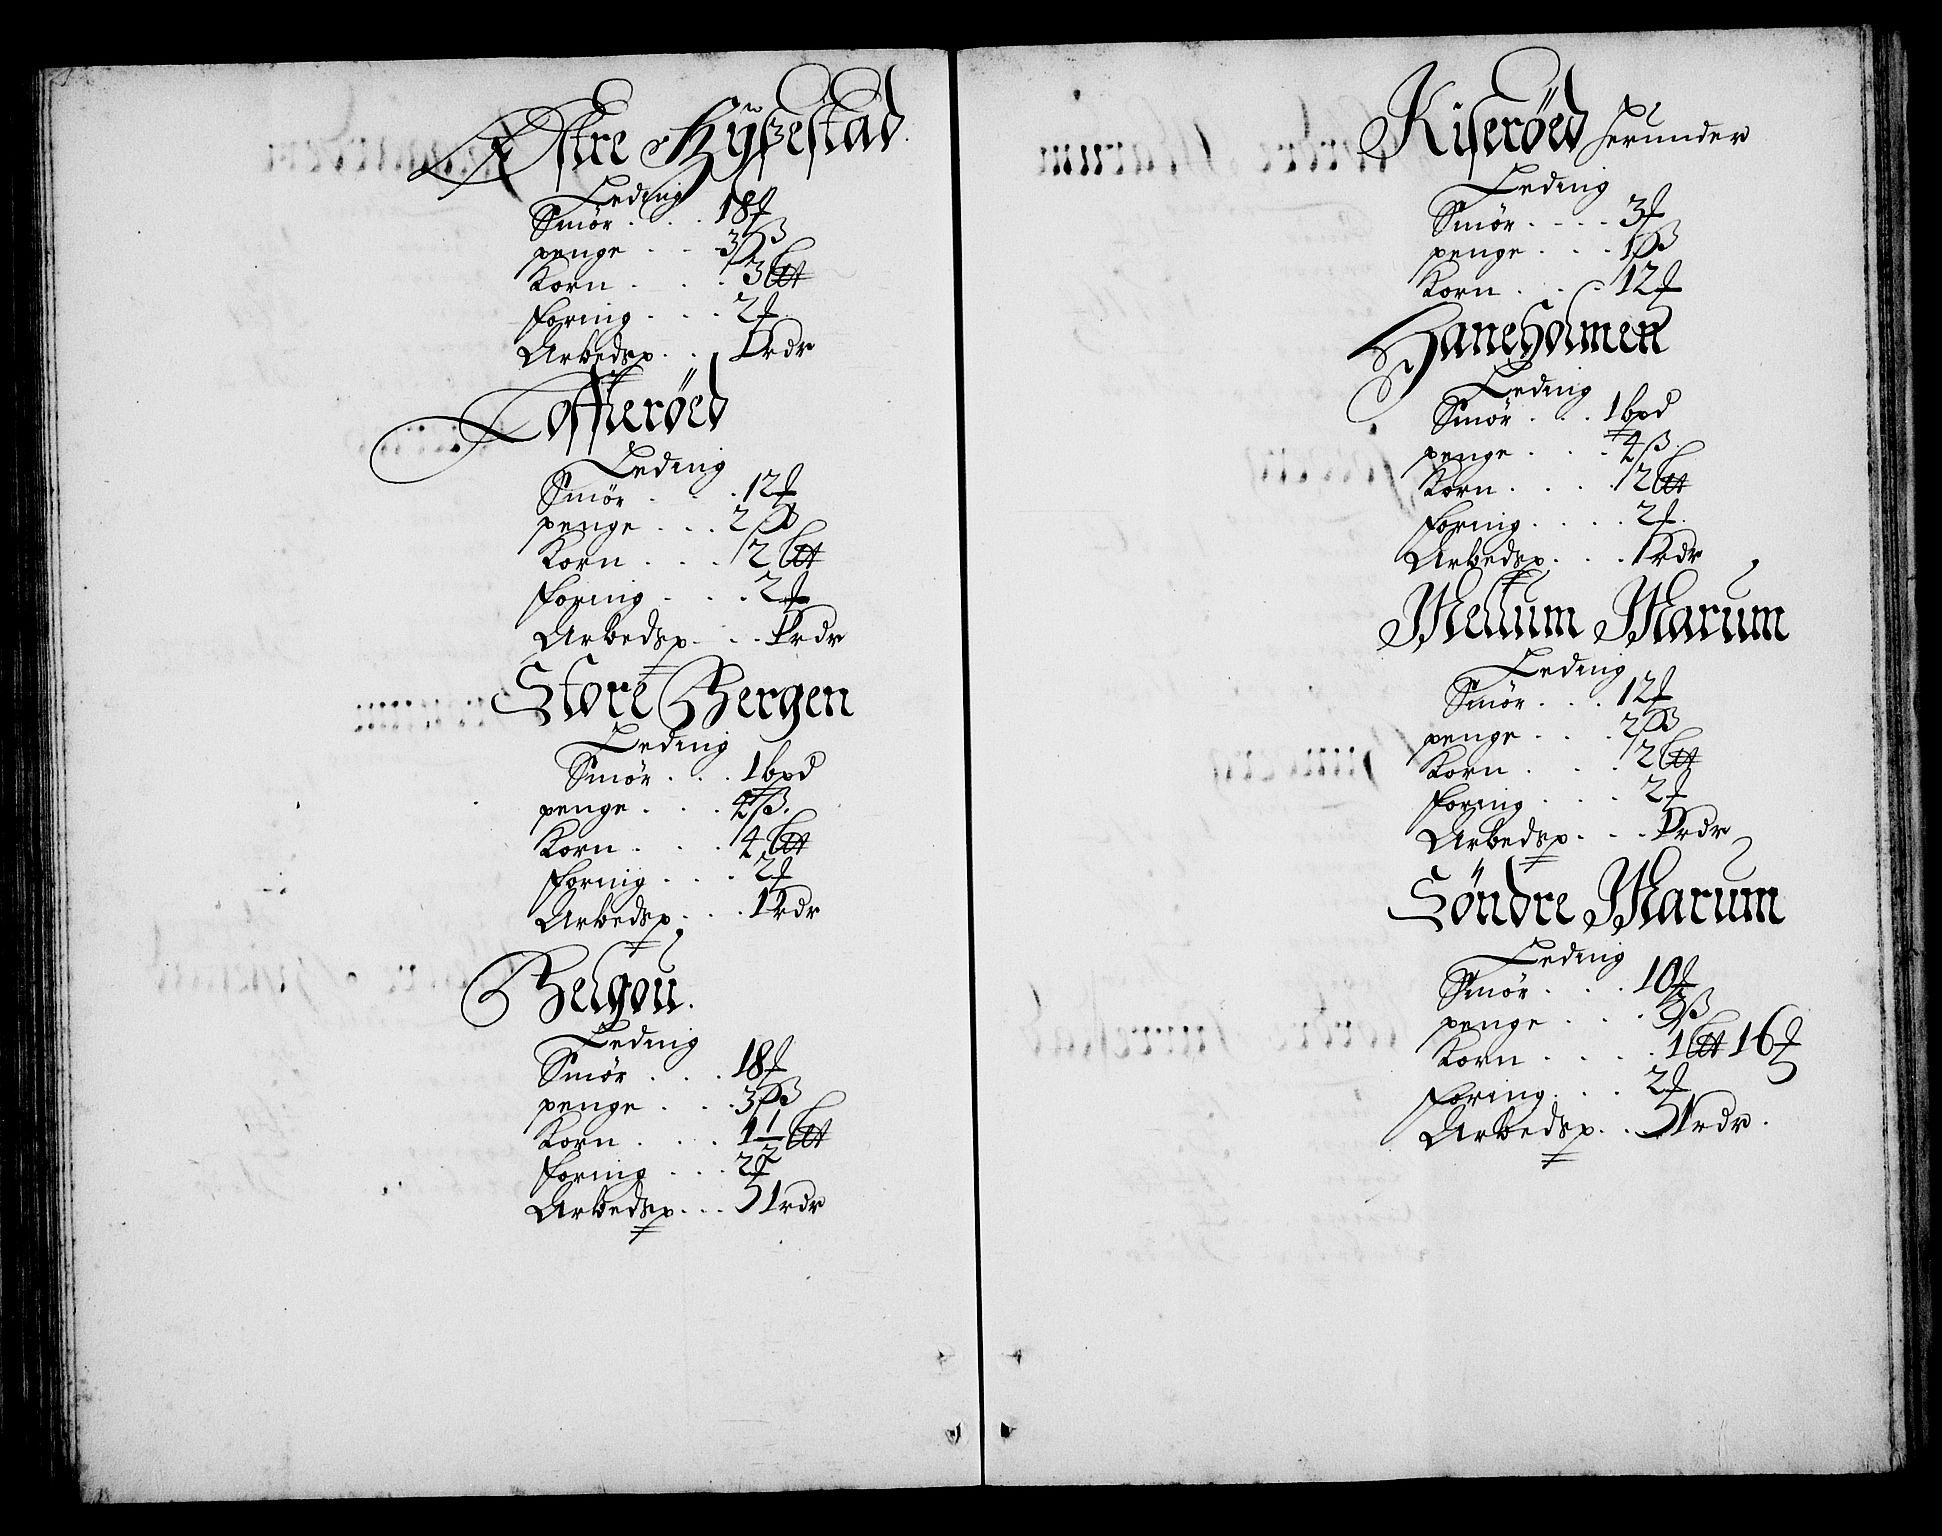 Østre Hÿßestad.
Leding
Smør . . . 18 ℔
penge . . . 3 ß
Korn . . . 3 Ltt
foring . . . 2 ℔
Arbedsp. . . 1 rdr
Tofflerøed
Leding
Smør . . . 12 ℔
penge . . . 2 ß
Korn . . . 2 Ltt
foring . . . 2 ℔
Arbedsp. . . 1 rdr
Store Bergen
Leding
Smør . . . 1 bpd
penge . . . 4 ß.
Korn . . . 4 Ltt
foring . . . 2 ℔
Arbedsp. . . 1 rdr
Helgou.
Leding
Smør . . . 18 ℔
penge . . . 3 ß
Korn . . . 1 1/2 Ltt
foring . . . 2 ℔
Arbedsp. . . 1 rdr
Kiserøed herunder
Leding
Smør . . . 3 ℔
penge . . . 1 ß
Korn . . . 12 ℔
Haneholmen
Leding
Smør . . . 1 bpd
penge . . . 4 ß.
Korn . . . 2 Ltt
foring . . . 2 ℔.
Arbedsp. . . 1 rdr
Mellum Marum
Leding
Smør . . . 12 ℔
penge . . . 2 ß
Korn . . . 2 Ltt
foring . . . 2 ℔
Arbedsp. . . 1 rdr
Søndre Marum
Leding
Smør . . . 10 ℔
penge . . . 2 ß
Korn . . . 1 Ltt 16 ℔
foring . . . 2 ℔
Arbedsp. . . 1 rdr.